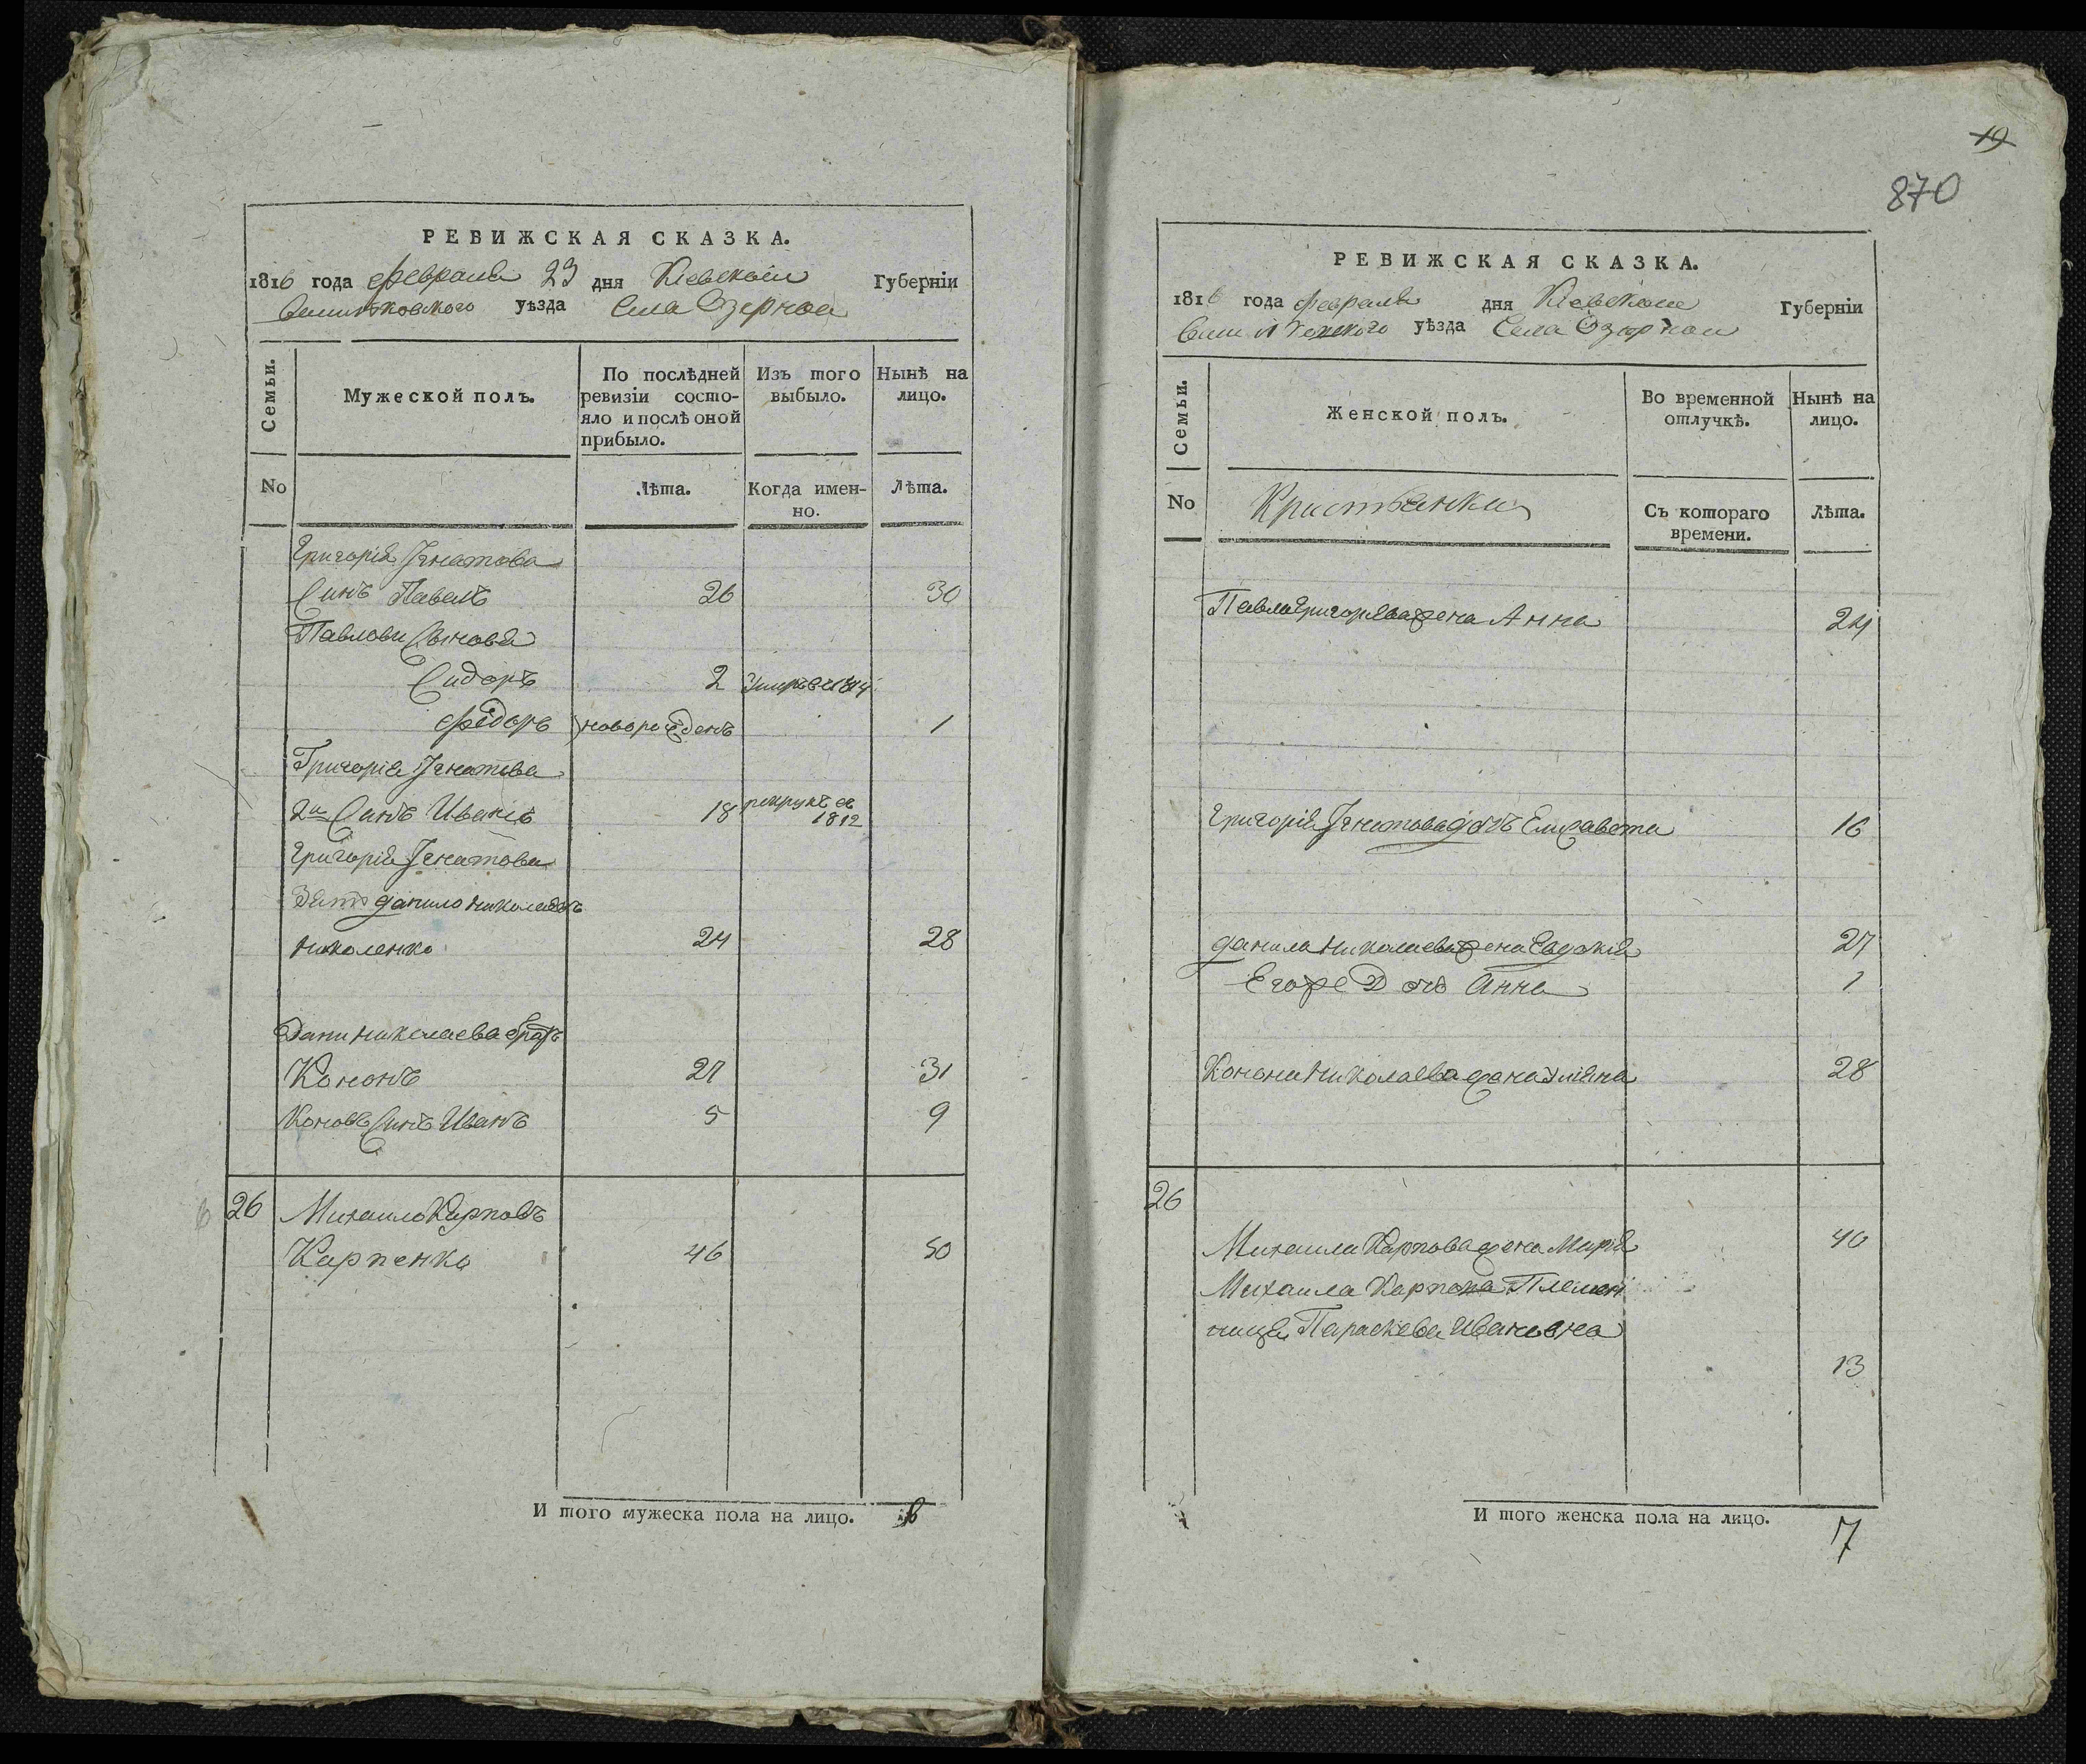 РЕВИЖСКАЯ СКАЗКА.
1816 года февраля 23 дня Кіевской Губерніи
уѣзда Села Озерной
Семьи.
Мужеской полъ.
По послѣдней ревизіи состояло и послѣ оной прибыло.
Изъ того выбыло.
Нынѣ на лицо.
No
Лѣта.
Когда именно.
Лѣта.
Григорія Игнатова
Синъ Павелъ 26 30
Павлови Синовя
Сидоръ 2 Умеръ в 1814
Федоръ новорожденъ 1
Григорія Игнатова
2й Синъ Иванъ 18 рекрутъ въ 1812
Григорія Игнатова
Зять Данило Николаевъ
Николенко 24 28
Дани Николаева братъ
Кононъ 27 31
Кононъ Синъ Иванъ 5 9
26 Михаило Карповъ
Карпенко 46 50
И того мужеска пола на лицо. 6
19
870
РЕВИЖСКАЯ СКАЗКА.
1816 года февраля дня Кіевской Губерніи
уѣзда Села Озерной
Семьи.
Женской полъ.
Во временной отлучкѣ.
Нынѣ на лицо.
No
Кристянки
Съ котораго времени.
Лѣта.
Павла Григорева жена Анна 24
Григорія Игнатова дочь Елисавета 16
Данила Николаева жена Евдокія 27
Егоже Дочь Анна 1
Конона Николаева жена Уляна 28
26
Михаила Карпова жена Марія 40
Михаила Карпова Племен
ница Параскева Ивановна
13
И того женска пола на лицо. 7